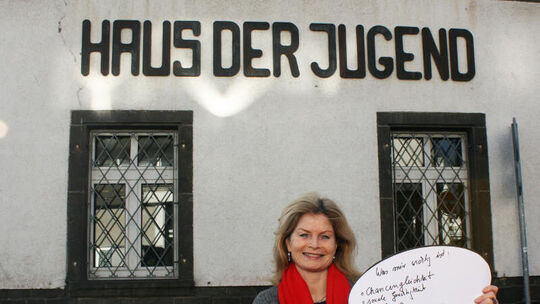 HAUS DER JUGEND
Was mir wichtig ist:
• Chancengleichheit
• soziale Gerechtigkeit